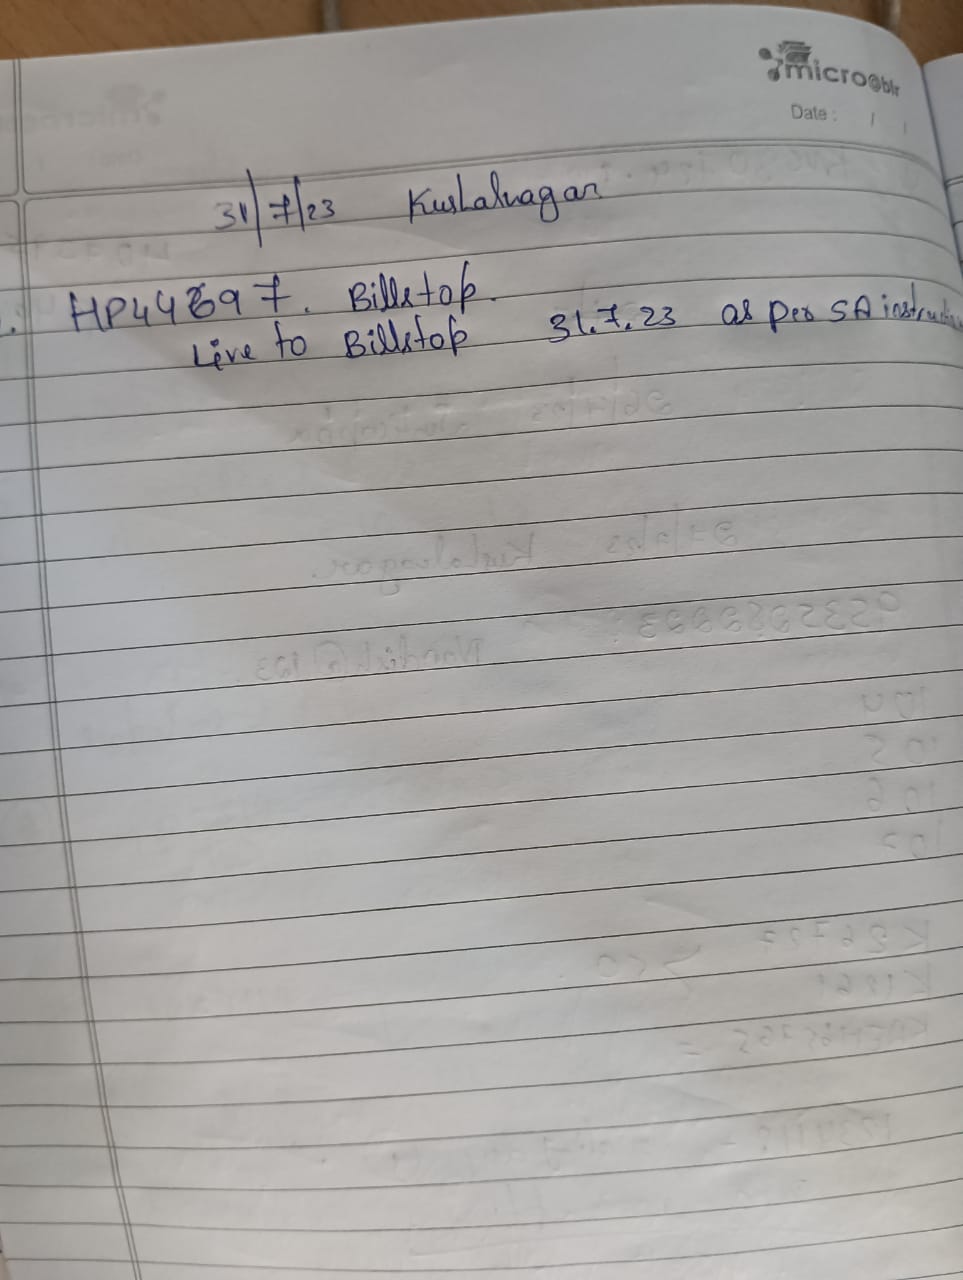 micro@blr
Date : / /
31/7/23 Kushalnagar
HP44897. Billstop.
Live to Billstop 31.7.23 as per SA instruction